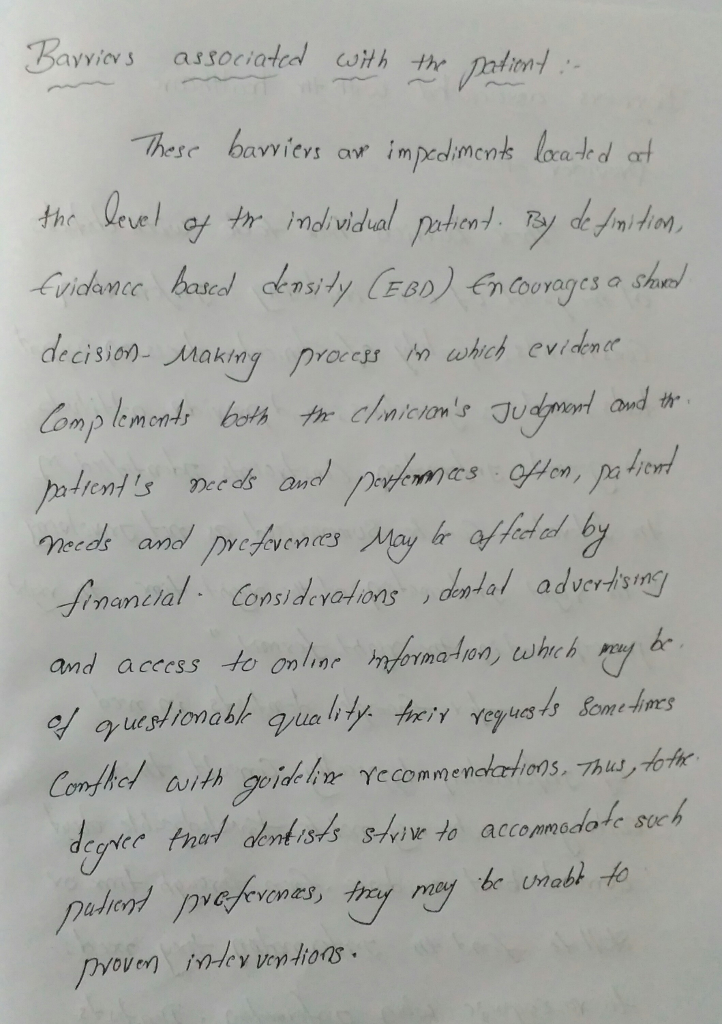 Barriers associated with the patient :-
These barriers are impediments located at
the level of the individual patient. By definition,
Evidance based density (EBD) Encourages a shared
decision- Making process in which evidence
Complements both the clinicion's Judgment and the.
patient's needs and . often, patient
needs and preferences May be affected by
financial. Considerations , dental advertising
and access to online information, which may be.
of questionable quality. their requests Sometimes
Conflict with guideline recommendations. Thus, to the.
degree that dentists strive to accommodate such
patient preferences, they may be unable to
proven interventions.